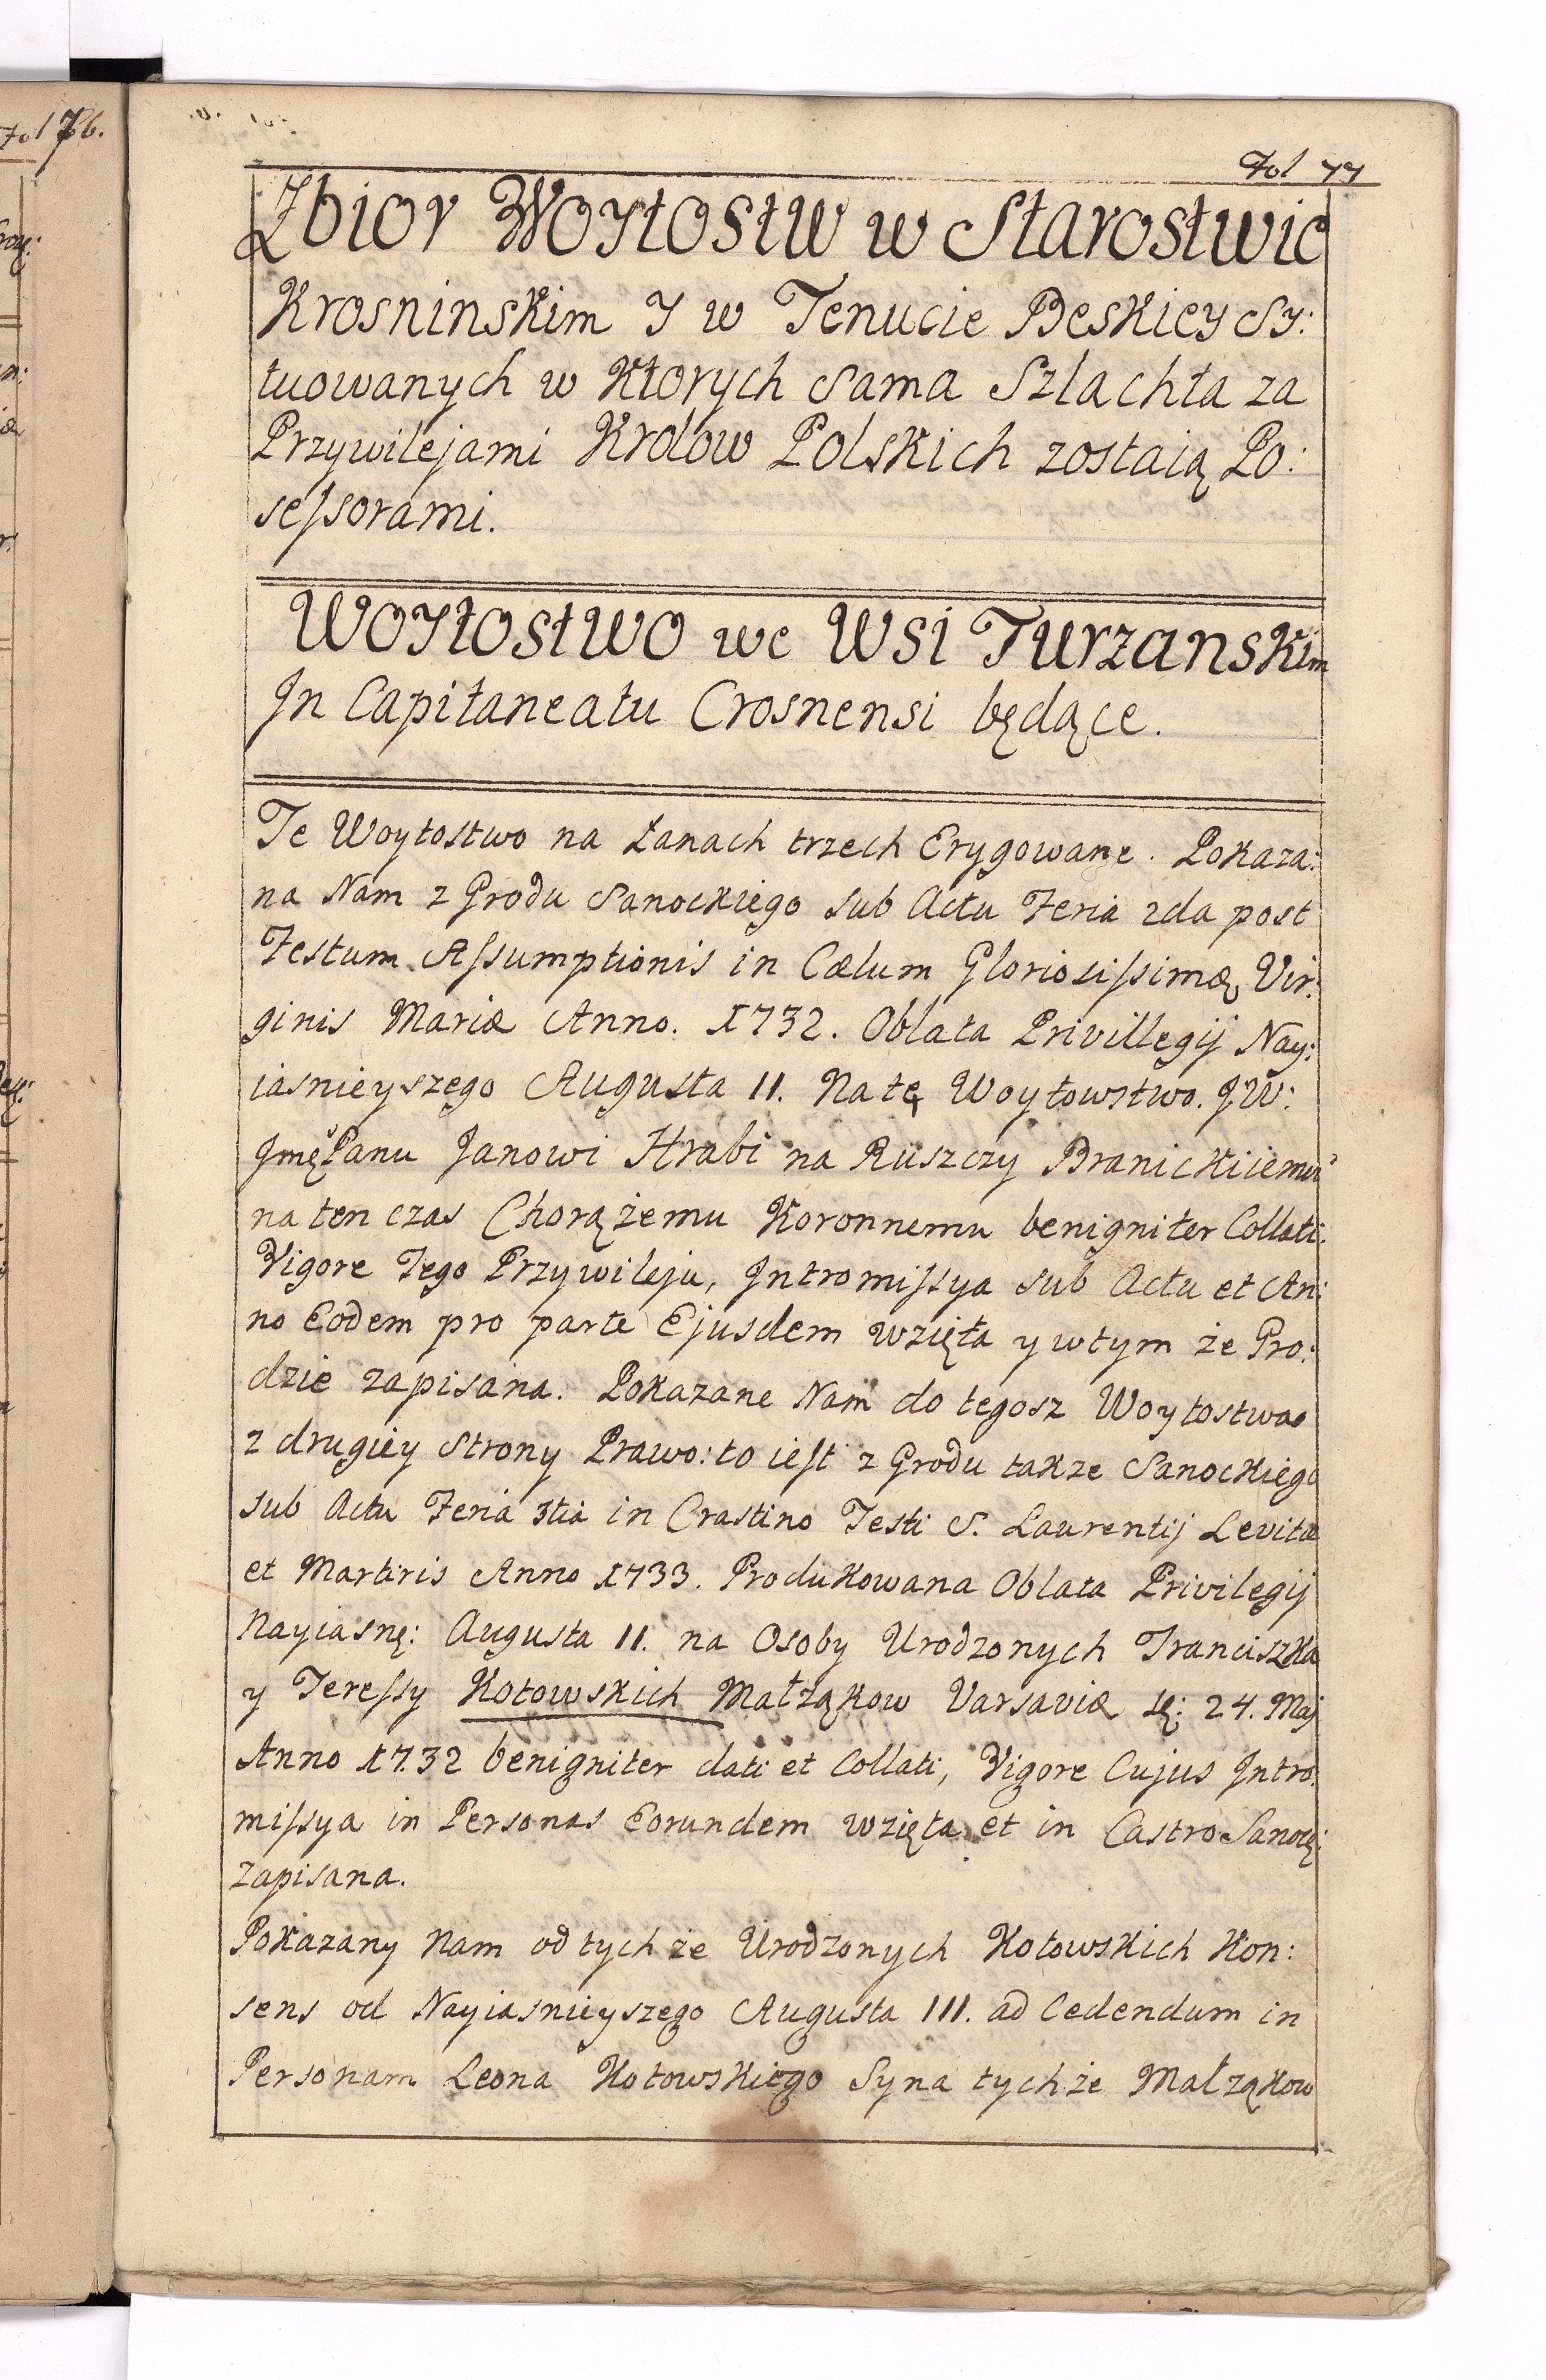 Fol 77
Zbior Woytostw w Starostwie
Krosninskim y w Tenucie Beskiey Sy:
tuowanych w Ktorych Sama Szlachta za
Przywilejami Krolow Polskich zostaią Po:
sessorami.
Woytostwo we Wsi Turzanskim
In Capitaneatu Crosnensi będące.
Te Woytostwo na Łanach trzech Erygowane. Pokaza:
na Nam z Grodu Sanockiego Sub Actu Feria 2da post
Festum Assumptionis in Cælum Gloriosissimæ Vir:
ginis Mariæ Anno. 1732. Oblata Privillegij Nay:
iasnieyszego Augusta II. Na tę Woytowstwo. J.W:
Jmę Panu Janowi Hrabi na Ruszczy Branickiiemu
na ten czas Chorążemu Koronnemu benigniter Collati.
Vigore Tego Przywileju, Intromissya sub Actu et An:
no Eodem pro parte Ejusdem wzięta y wtym że Gro:
dzie zapisana. Pokazane Nam do tegosz Woytostwa
z drugiey Strony Prawo: to iest z Grodu takze Sanockiego
sub Actu Feria 3tia in Crastino Festi S. Laurentij Levitæ
et Martiris Anno 1733. Produkowana Oblata Privilegij
Nayiasnę: Augusta II. na Osoby Urodzonych Franciszka
y Teressy Kotowskich Małząkow Varsaviæ 24. Maj
Anno 1732 benigniter dati et Collati, Vigore Cujus Intro:
missya in Personas Eorundem wzięta et in Castro Sanocę:
Zapisana.
Pokazany Nam od tych że Urodzonych Kotowskich Kon:
sens od Nayiasnieyszego Augusta III. ad Cedendum in
Personam Leona Kotowskiego Syna tychże Małząkow
Fol 76.